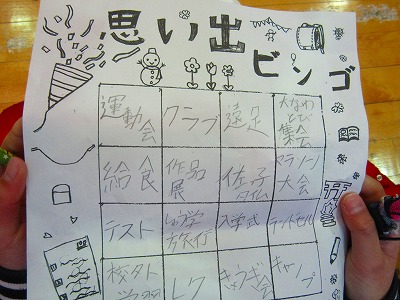 思い出
ビンゴ
運動会
クラブ
遠足
大なわ
とび
集会
給食
作品
展
佐子
タイム
マラソン
大会
テスト
しゅう学
旅行
入学式
ランドセル
校外
学習
レク
きゅうぎ
会
キャンプ